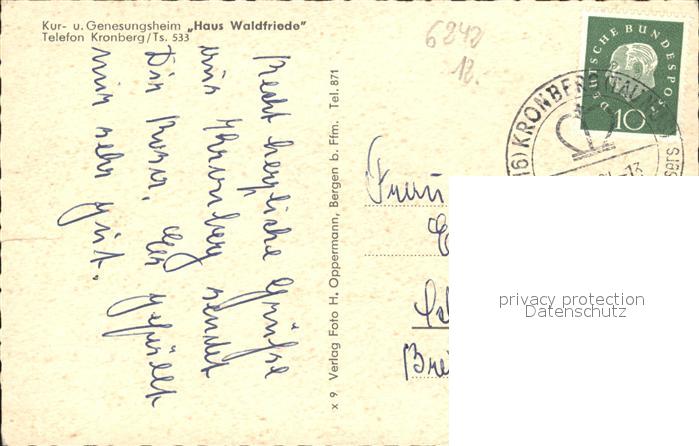 Kur- u. Genesungsheim „Haus Waldfriede"
Telefon Kronberg/Ts. 533
6242
12.
Recht herzliche Grüße
aus Kronberg sendet
Dir Rosa. Es gefällt
mir sehr gut.
x 9. Verlag Foto H. Oppermann, Bergen b. Ffm. Tel. 871
DEUTSCHE BUNDESPOST
10
(16) KRONBERG (TAUNUS)
Frau
privacy protection
Datenschutz